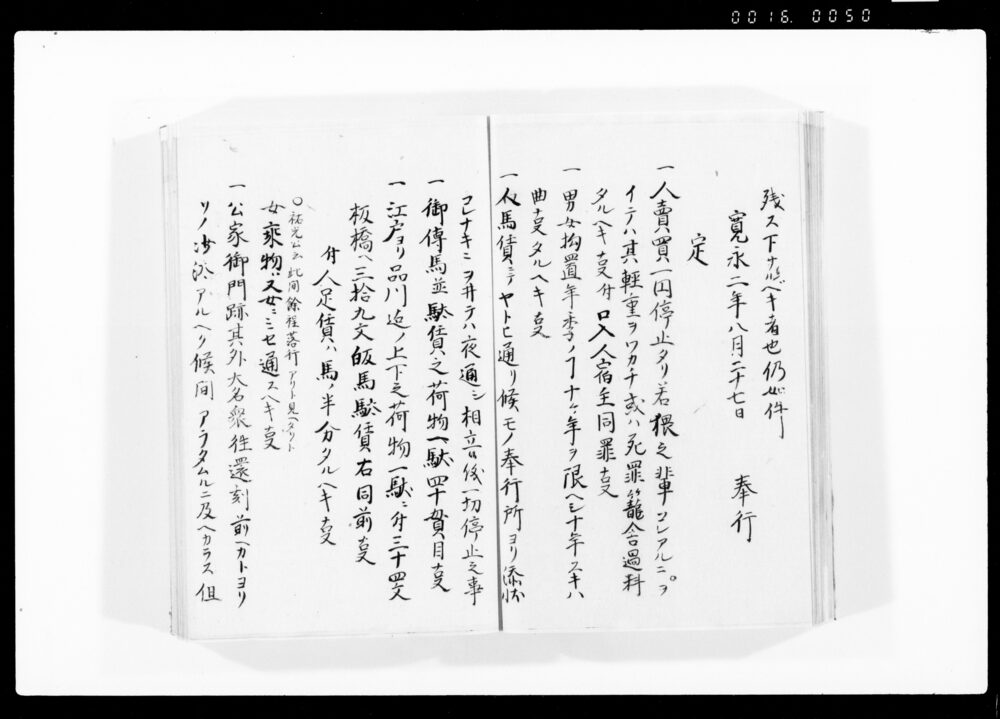 0016. 0050
残ス下ナルベキ者也仍如件
寛永二年八月二十七日 奉行
定
一人賣買一円停止タリ若猥之輩コレアルニヲ
イテハ其輕重ヲワカチ或ハ死罪籠舎過科
タルヘキ事付口入人宿主同罪事
一男女抱置年季ノ十ヶ年ヲ限ヘシ十年スキハ
曲事タルヘキ事
一伝馬賃ニテヤトヒ通リ候モノ奉行所ヨリ添状
コレナキニヲ井テハ夜通シ相立後一切停止之事
一御傳馬並駄賃之荷物一駄四十貫目事
一江戸ヨリ品川迄ノ上下之荷物一駄ニ付三十四文
板橋ヘ三拾九文皈馬駄賃右同前事
付人足賃ハ馬ノ半分タルヘキ事
〇祐光云此間餘程落行アリト見ヘタリト
女乘物ハ又女ニミセ通スヘキ事
一公家御門跡其外大名衆往還刻前カトヨリ
ソノ沙汰アルヘク候間アラタムルニ及ヘカラス但